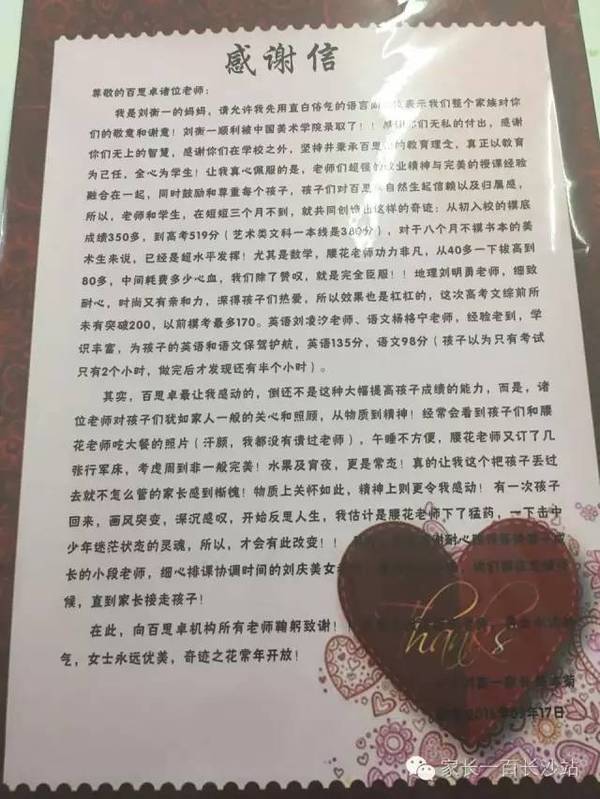 感谢信
尊敬的百思卓诸位老师：
我是刘衡一的妈妈，请允许我先用直白俗气的语言向 表示我们整个家族对你
们的敬意和谢意！刘衡一顺利被中国美术学院录取了！！感谢你们无私的付出，感谢
你们无上的智慧，感谢你们在学校之外，坚持并秉承百思 的教育理念，真正以教育
为己任，全心为学生！让我真心佩服的是，老师们超强的 业精神与完美的授课经验
融合在一起，同时鼓励和尊重每个孩子，孩子们对百思 自然生起信赖以及归属感，
所以，老师和学生，在短短三个月不到，就共同创 出这样的奇迹：从初入校的摸底
成绩350多，到高考519分（艺术类文科一本线是380分），对于八个月不摸书本的美
术生来说，已经是超水平发挥！尤其是数学，腰花老师功力非凡，从40多一下拔高到
80多，中间耗费多少心血，我们除了赞叹，就是完全臣服！！地理刘明勇老师，细致
耐心，时尚又有亲和力，深得孩子们热爱，所以效果也是杠杠的，这次高考文综前所
未有突破200，以前模考最多170。英语刘凌汐老师、语文杨格宁老师，经验老到，学
识丰富，为孩子的英语和语文保驾护航，英语135分，语文98分（孩子以为只有考试
只有2个小时，做完后才发现还有半个小时）。
其实，百思卓最让我感动的，倒还不是这种大幅提高孩子成绩的能力，而是，诸
位老师对孩子们犹如家人一般的关心和照顾，从物质到精神！经常会看到孩子们和腰
花老师吃大餐的照片（汗颜，我都没有请过老师），午睡不方便，腰花老师又订了几
张行军床，考虑周到非一般完美！水果及宵夜，更是常态！真的让我这个把孩子丢过
去就不怎么管的家长感到惭愧！物质上关怀如此，精神上则更令我感动！有一次孩子
回来，画风突变，深沉感叹，开始反思人生，我估计是腰花老师下了猛药，一下击中
少年迷茫状态的灵魂，所以，才会有此改变！！ 感谢耐心 成
长的小段老师，细心排课协调时间的刘庆美女
候，直到家长接走孩子！
在此，向百思卓机构所有老师鞠躬致谢！
气，女士永远优美，奇迹之花常年开放！
thanks
衡一家长
17日
家长一百长沙站